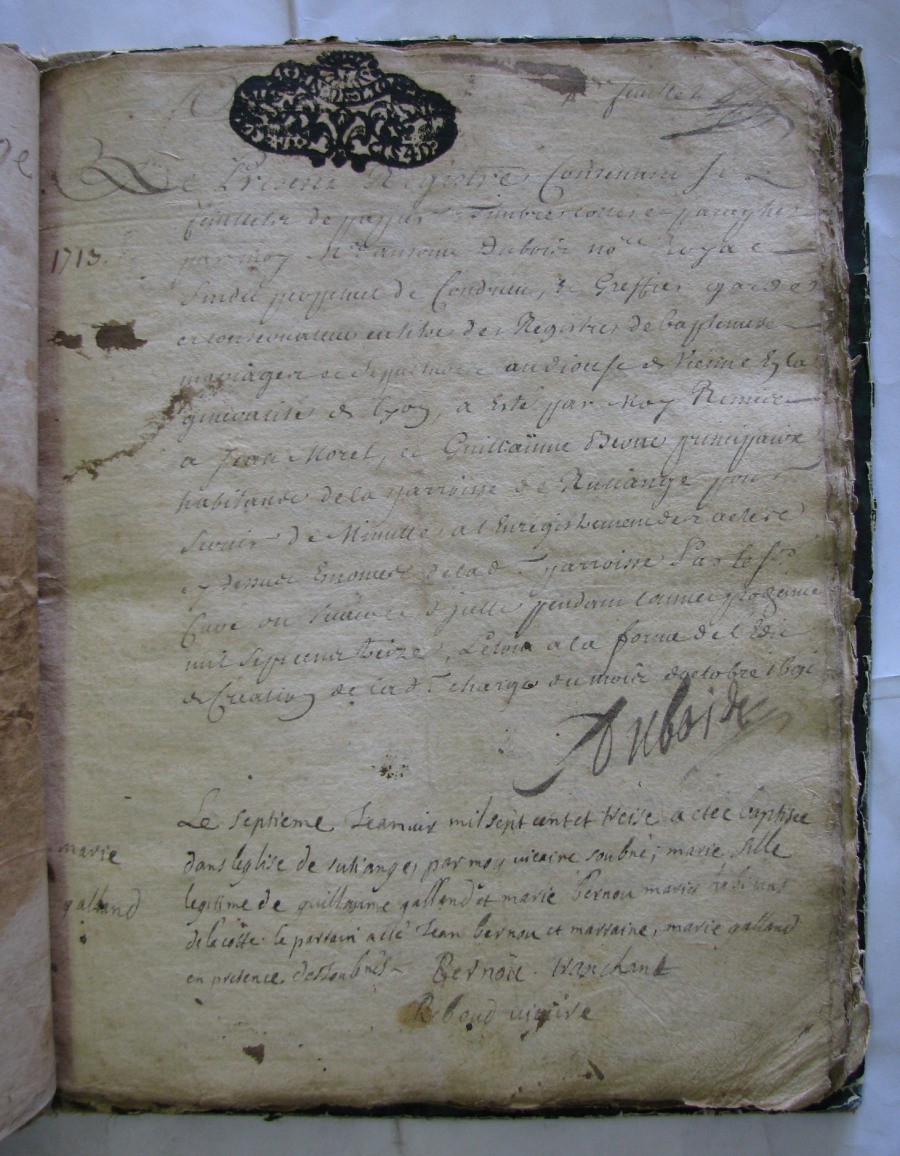 feuillet
Le Present Registre Contenant Six
feuillets de papier Timbré cottés et paraphés
1713.
par moy Antoine Dubois no.re Royal
Sindic perpetuel de Condrieu, & Greffier garde et
conservateur des Registres de baptemes
mariages et sepultures au diocese de Vienne
generalité de Lyon, a Esté par Moy Remis
a Jean Morel, et Guillaume principaux
habitans de la parroisse de pour
servir de Minutte a l'Enregistrement des actes
cy dessus Enoncés de lad. parroisse Par le Sr.
Curé ou Vicaire d'jcelle pendant l'année prochaine
mil sept cent treize, Le tout a la forme de l'Edit
de Creation de lad. charge du mois d'octobre 1691
Dubois
Le septieme Jeanvir mil sept cent et treise a etée baptisée
marie
dans leglise de par moy vicaire soubné, marie fille
galland
legitime de guillaume galland et marie bernou mariés habitans
de la coste le parrain a eté Jean bernou et marraine, marie galland
en presence des soubnés Bernou tranchant
vicaire